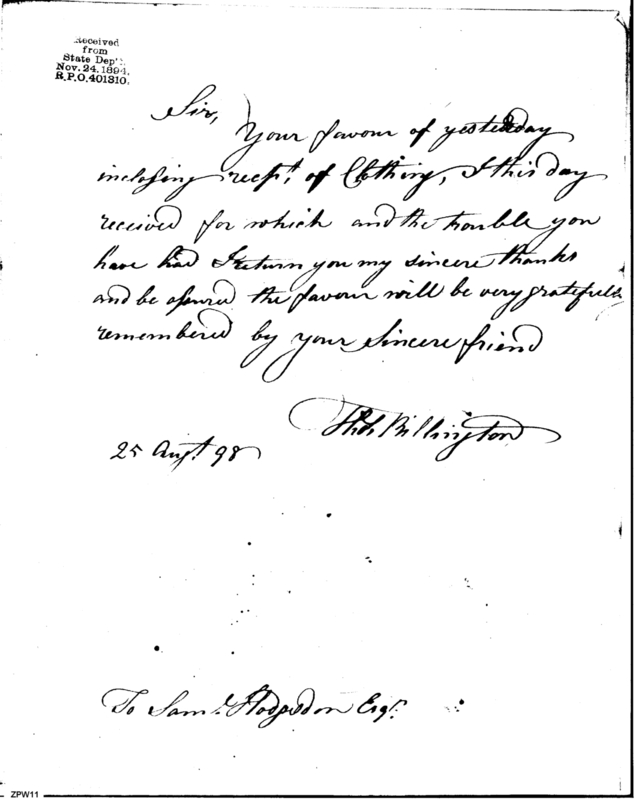 Received
from
State Dep't.
Nov. 24, 1894.
R.P.O. 401310.
Sir,
Your favour of yesterday
inclosing recpt. of Clothing, I this day
received for which and the trouble you
have had I return you my sincere thanks
and be assured the favour will be very gratefully
remembered by your sincere friend
Thos. Billington
25 Augt. 98
To Saml. Hodgsdon Esqr.
ZPW11